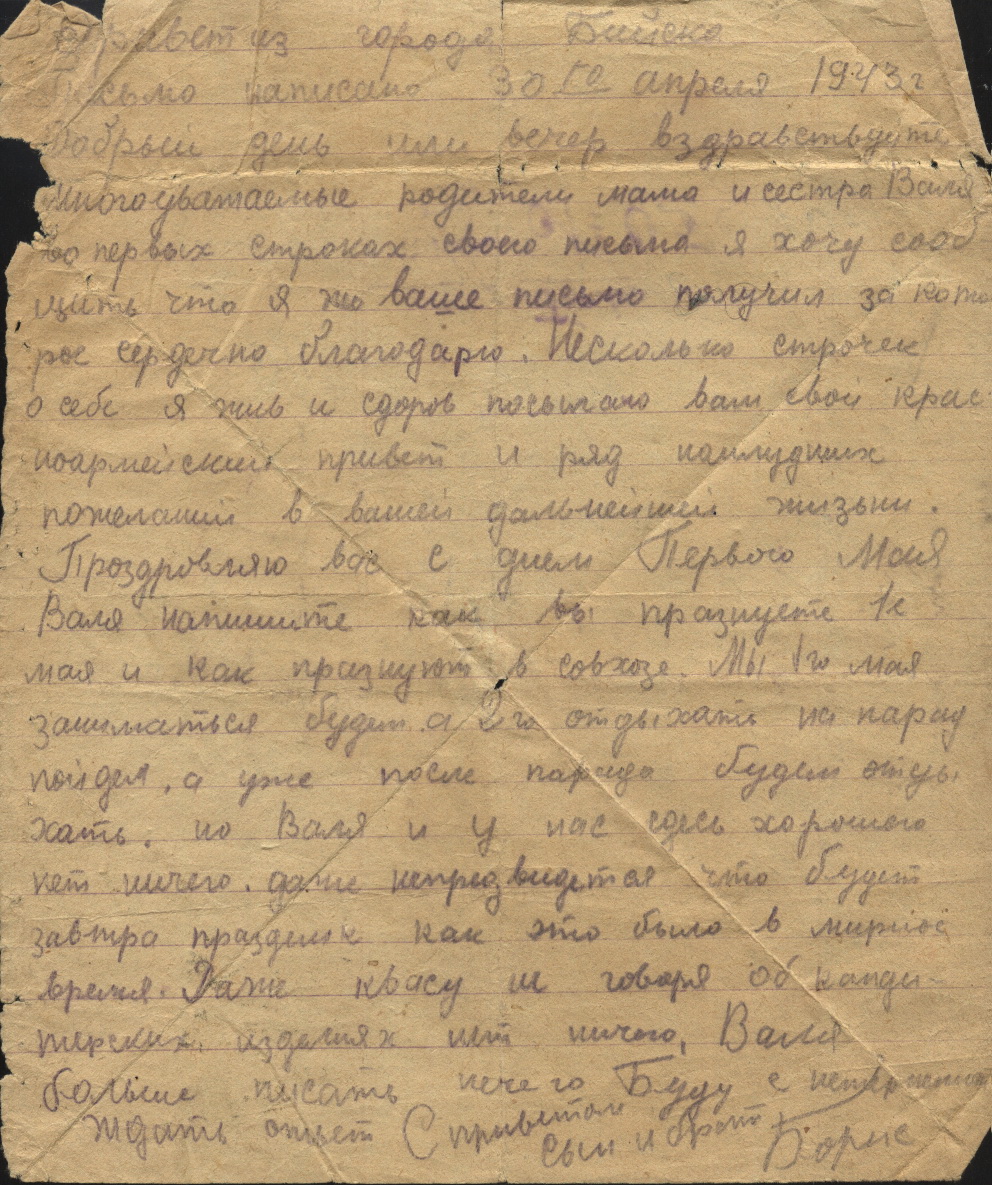 Привет из города Бийска
Письмо написано 30го апреля 1943 г
Добрый день или вечер вздравствуйте
многоуважаемые родители мама и сестра Валя
во первых строках своего письма я хочу сооб
щить что я же ваше письмо получил за кото
рое сердечно благодарю. Несколько строчек
о себе я жив и сдоров посылаю вам свой крас
ноармейский привет и ряд наилудших
пожеланий в вашей дальнейшей жизьни.
Проздровляю вас с днем Первого Мая
Валя напишите как вы празнуете 1е
мая и как празнуют в совхозе. Мы 1го мая
заниматься будем а 2го отдыхать на парад
пойдем, а уже после парада будем отды
хать, но Валя и у нас сдесь хорошего
нет ничего. даже непредвидется что будет
завтра празделик как это было в мирное
время. Даже квасу не говоря об канди-
терских изделиях нет ничего, Валя
больше писать нечего Буду с нетерпением
ждать ответ С приветом
сын и брат Борис